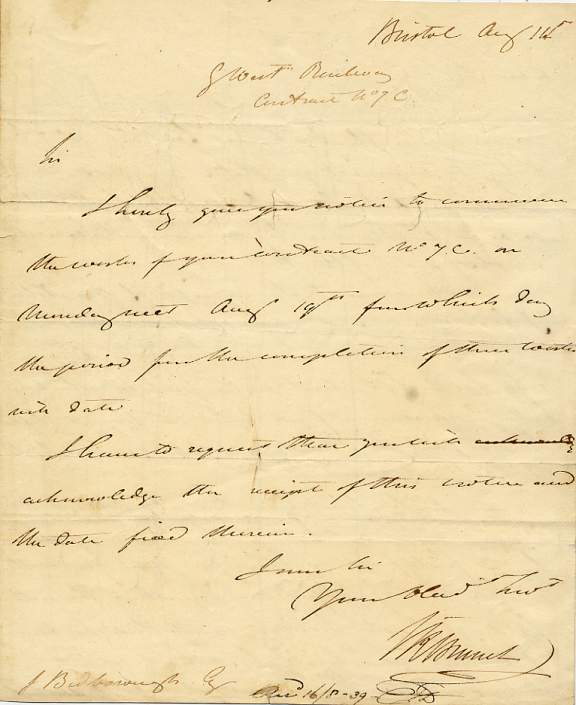 Bristol Aug 14
G West Railway
Contract No 7 C.
Sir
I hereby give you notice to commence
the works of your contract No 7 C. on
Monday next Aug 19th from which day
the period for the completion of these works
will date
I have to request that you will
acknowledge the receipt of this notice and
the date fixed therein.
I am Sir
Your Obedt Servt
I K Brunel
J Bedborough Esq
16/8-39